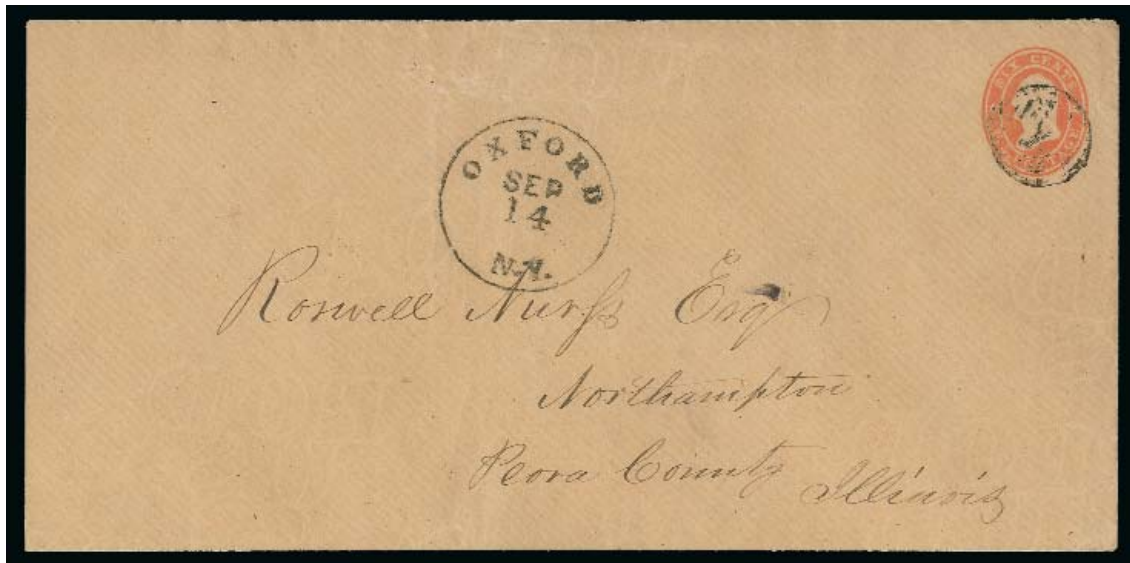 SIX CENTS
POSTAGE
OXFORD
SEP
14
N.Y.
Roswell Nurss Esq
Northampton
Peora County Illinois